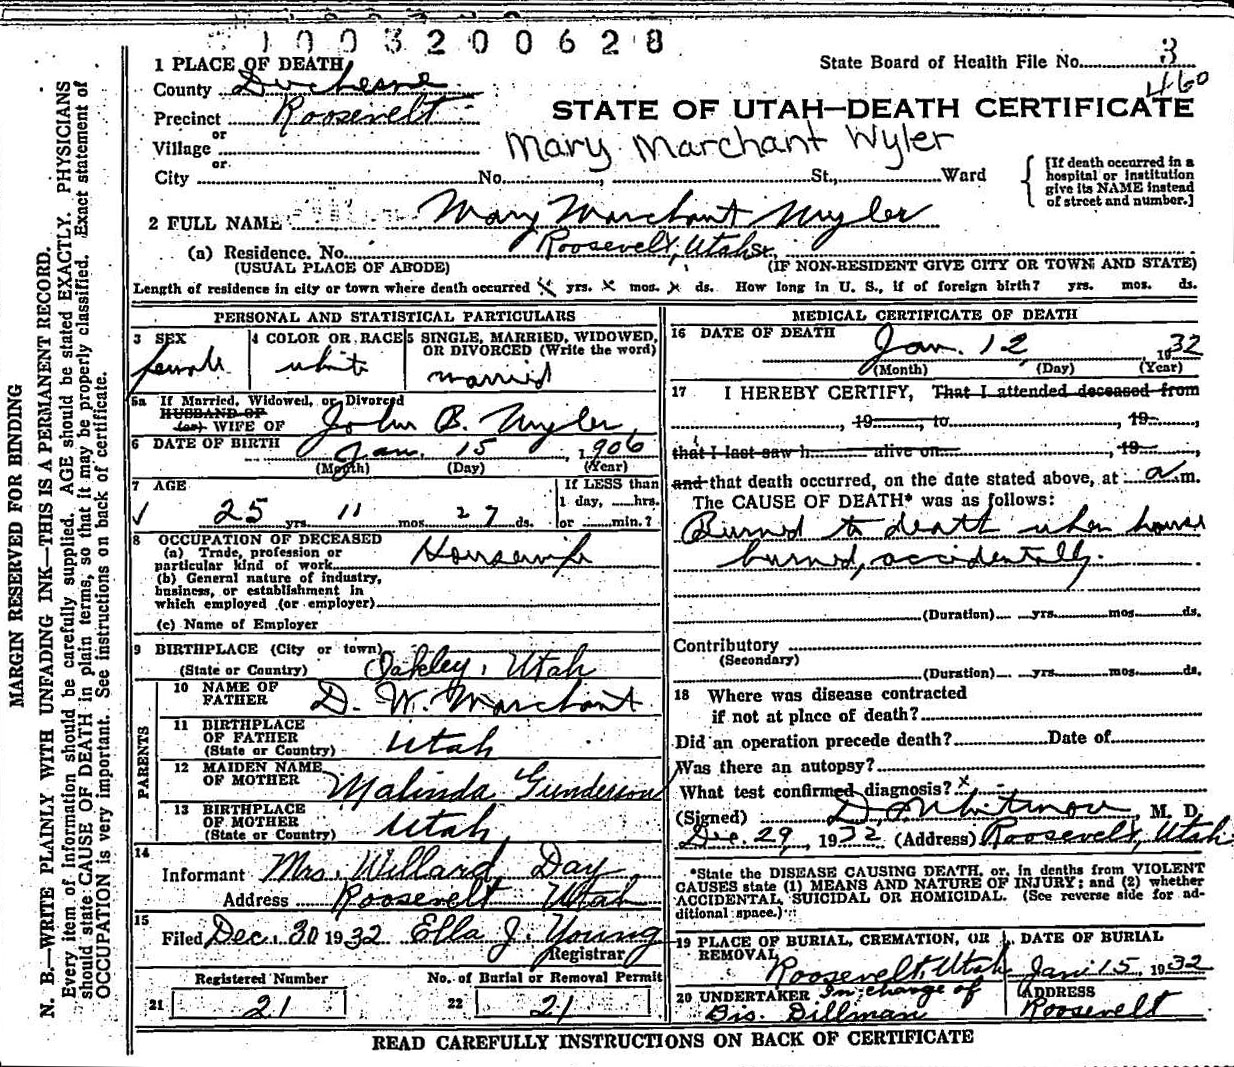 1003200628
State Board of Health File No. 3
460
1 PLACE OF DEATH
County Duchesne
Precinct Roosevelt
or
Village
or
City No. St., Ward
STATE OF UTAH—DEATH CERTIFICATE
Mary Marchant Wyler
[If death occurred in a
hospital or institution
give its NAME instead
of street and number.]
2 FULL NAME Mary Marchant Wyler
(a) Residence. No. Roosevelt, Utah St.,
(USUAL PLACE OF ABODE) (IF NON-RESIDENT GIVE CITY OR TOWN AND STATE)
Length of residence in city or town where death occurred x yrs. x mos. x ds. How long in U. S., if of foreign birth? yrs. mos. ds.
PERSONAL AND STATISTICAL PARTICULARS
3 SEX
female
4 COLOR OR RACE
white
5 SINGLE, MARRIED, WIDOWED,
OR DIVORCED (Write the word)
married
5a If Married, Widowed, or Divorced
HUSBAND OF
(or) WIFE OF John B. Wyler
6 DATE OF BIRTH Jan. 15, 1906
(Month) (Day) (Year)
7 AGE
25 yrs. 11 mos. 27 ds.
If LESS than
1 day, hrs.
or min.?
8 OCCUPATION OF DECEASED
(a) Trade, profession or
particular kind of work Housewife
(b) General nature of industry,
business, or establishment in
which employed (or employer)
(c) Name of Employer
9 BIRTHPLACE (City or town)
(State or Country) Oakley, Utah
PARENTS
10 NAME OF
FATHER D. W. Marchant
11 BIRTHPLACE
OF FATHER
(State or Country) Utah
12 MAIDEN NAME
OF MOTHER Malinda Gunderson
13 BIRTHPLACE
OF MOTHER
(State or Country) Utah
14
Informant Mrs. Willard Day
Address Roosevelt Utah
15
Filed Dec. 30 1932 Ella J. Young
Registrar
Registered Number No. of Burial or Removal Permit
21 21 22 21
MEDICAL CERTIFICATE OF DEATH
16 DATE OF DEATH
Jan. 12, 1932
(Month) (Day) (Year)
17 I HEREBY CERTIFY, That I attended deceased from
, 19 , to , 19 ,
that I last saw h alive on , 19 ,
and that death occurred, on the date stated above, at a m.
The CAUSE OF DEATH* was as follows:
Burned to death when house
burned, accidentally.
(Duration) yrs. mos. ds.
Contributory
(Secondary)
(Duration) yrs. mos. ds.
18 Where was disease contracted
if not at place of death?
Did an operation precede death? Date of
Was there an autopsy?
What test confirmed diagnosis? x
(Signed) D. Whitmore, M. D.
Dec. 29, 1932 (Address) Roosevelt, Utah
*State the DISEASE CAUSING DEATH, or, in deaths from VIOLENT
CAUSES state (1) MEANS AND NATURE OF INJURY; and (2) whether
ACCIDENTAL, SUICIDAL OR HOMICIDAL. (See reverse side for ad-
ditional space.)
19 PLACE OF BURIAL, CREMATION, OR
REMOVAL
Roosevelt, Utah
DATE OF BURIAL
Jan. 15, 1932
20 UNDERTAKER In charge of
Dillman
ADDRESS
Roosevelt
READ CAREFULLY INSTRUCTIONS ON BACK OF CERTIFICATE
MARGIN RESERVED FOR BINDING
N. B.—WRITE PLAINLY WITH UNFADING INK—THIS IS A PERMANENT RECORD.
Every item of information should be carefully supplied. AGE should be stated EXACTLY. PHYSICIANS
should state CAUSE OF DEATH in plain terms, so that it may be properly classified. Exact statement of
OCCUPATION is very important. See instructions on back of certificate.